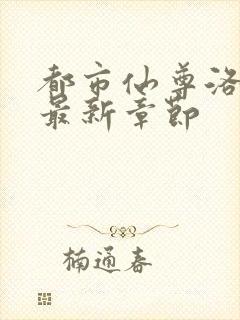 都市仙尊洛
最新章節
楠通春